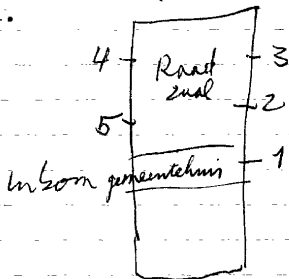 4 Raad 3
zaal 2
5
Inkom gemeentehuis 1